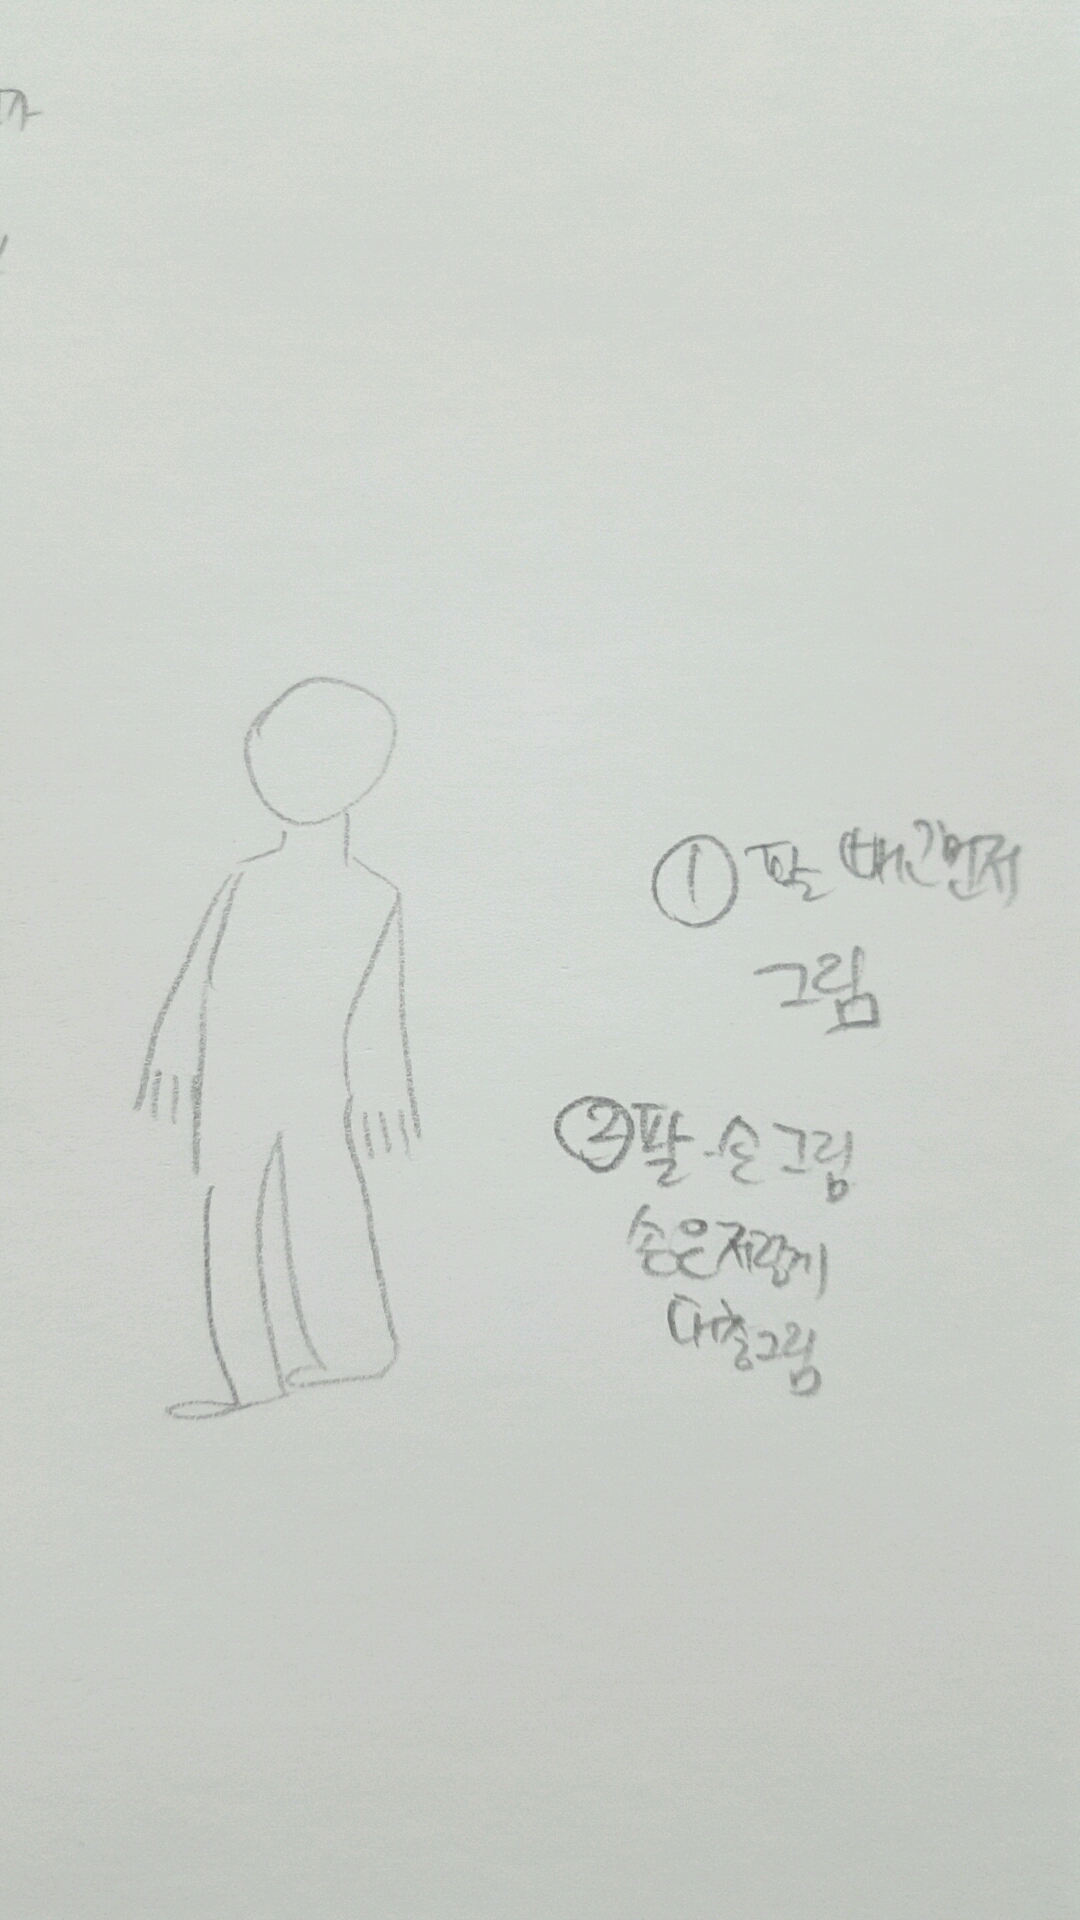 가
① 팔 빼고 먼저
그림
② 팔-손 그림
손은 저렇게
대충 그림